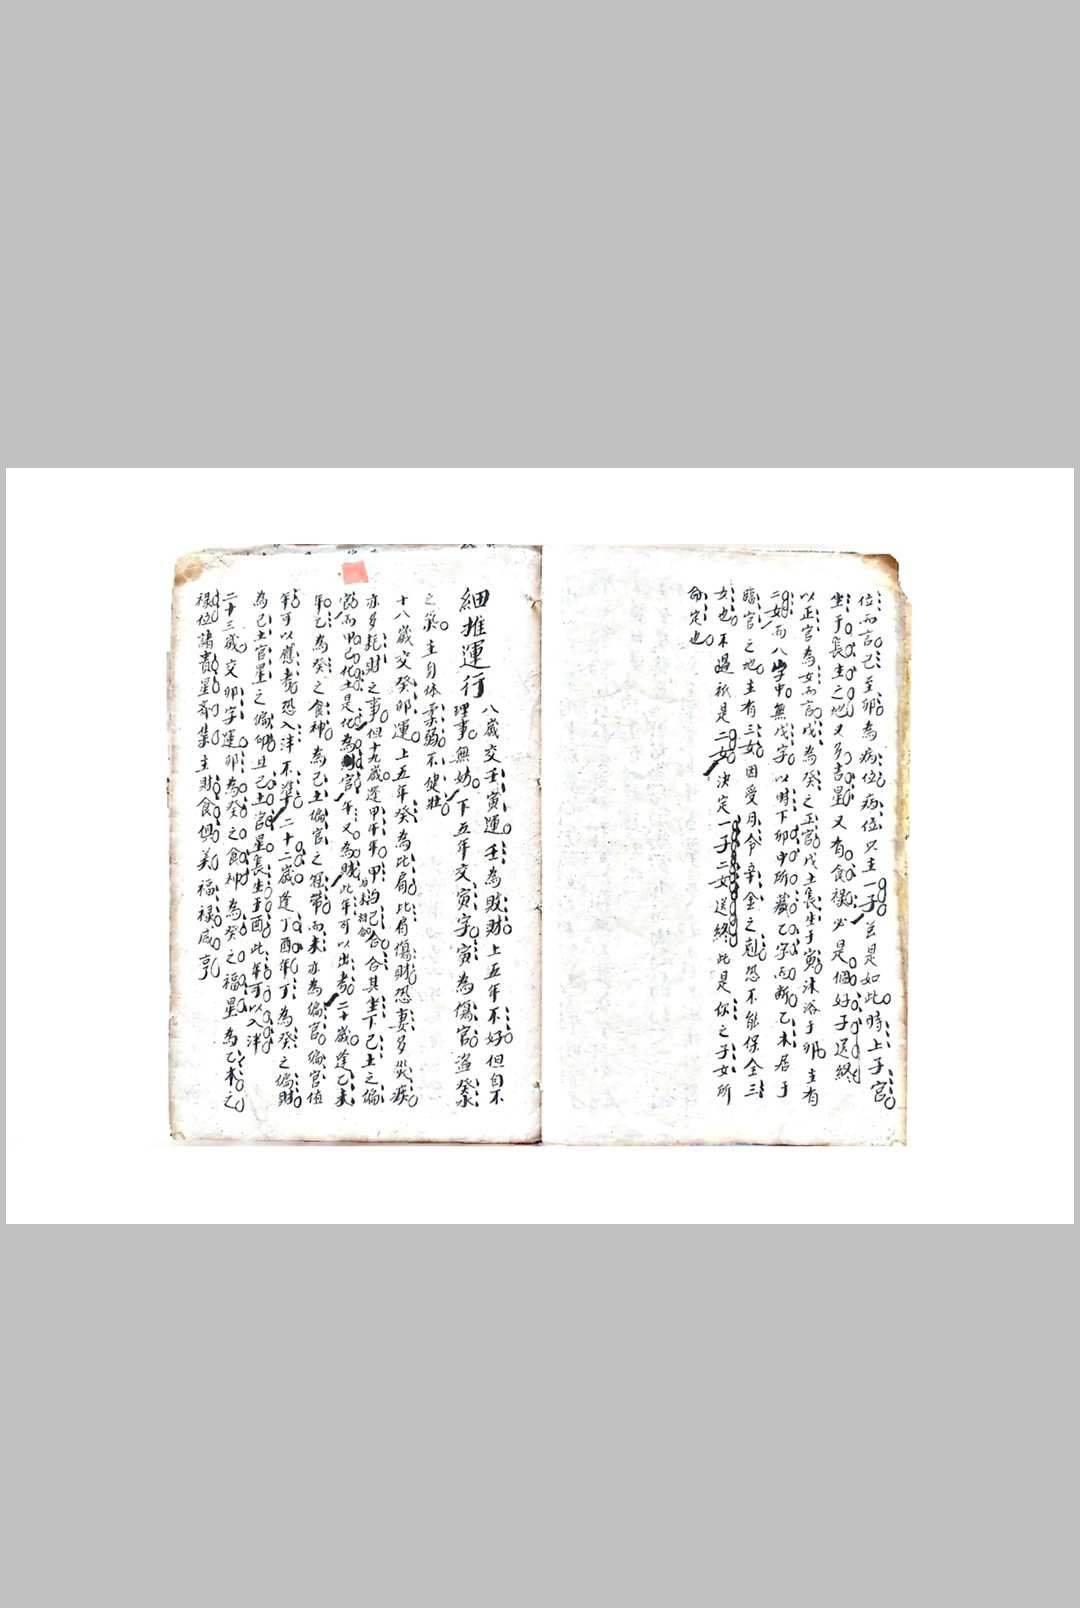 位而言己至卯為病位病位只主一子並是如此時上子官
坐于長生之地又多吉星又有食祿必是個好子送終
以正官為女而言戊為癸之正官戊土長生于寅沐浴于卯主有
二女而八字中無戊字以時下卯中所藏乙字而断乙木居于
臨官之地主有三女因受月令辛金之剋恐不能保全三
女也不過祇是二女決定一子二女送終此是你之子女所
命定也
細推運行
八歲交壬寅運壬為敗財上五年不好但自不
理事無妨下五年交寅字寅為傷官盗癸水
之氣主身体柔弱不健壯
十八歲交癸卯運上五年癸為比肩比肩傷財恐妻多災疾
亦多耗財之事但十九歲逢甲午年甲與己合合其坐下己土之偏
官而甲己化土是化為官午又為財此年可以出考二十歲逢乙未
年乙為癸之食神為己土偏官之冠帶而未亦為偏官偏官值
年可以應考恐入泮不準二十二歲逢丁酉年丁為癸之偏財
為己土官星之偏印且己土官星長生于酉此年可以入泮
二十三歲交卯字運卯為癸之食神為癸之福星為乙木之
祿位諸貴星齊集主財食俱美福祿咸亨